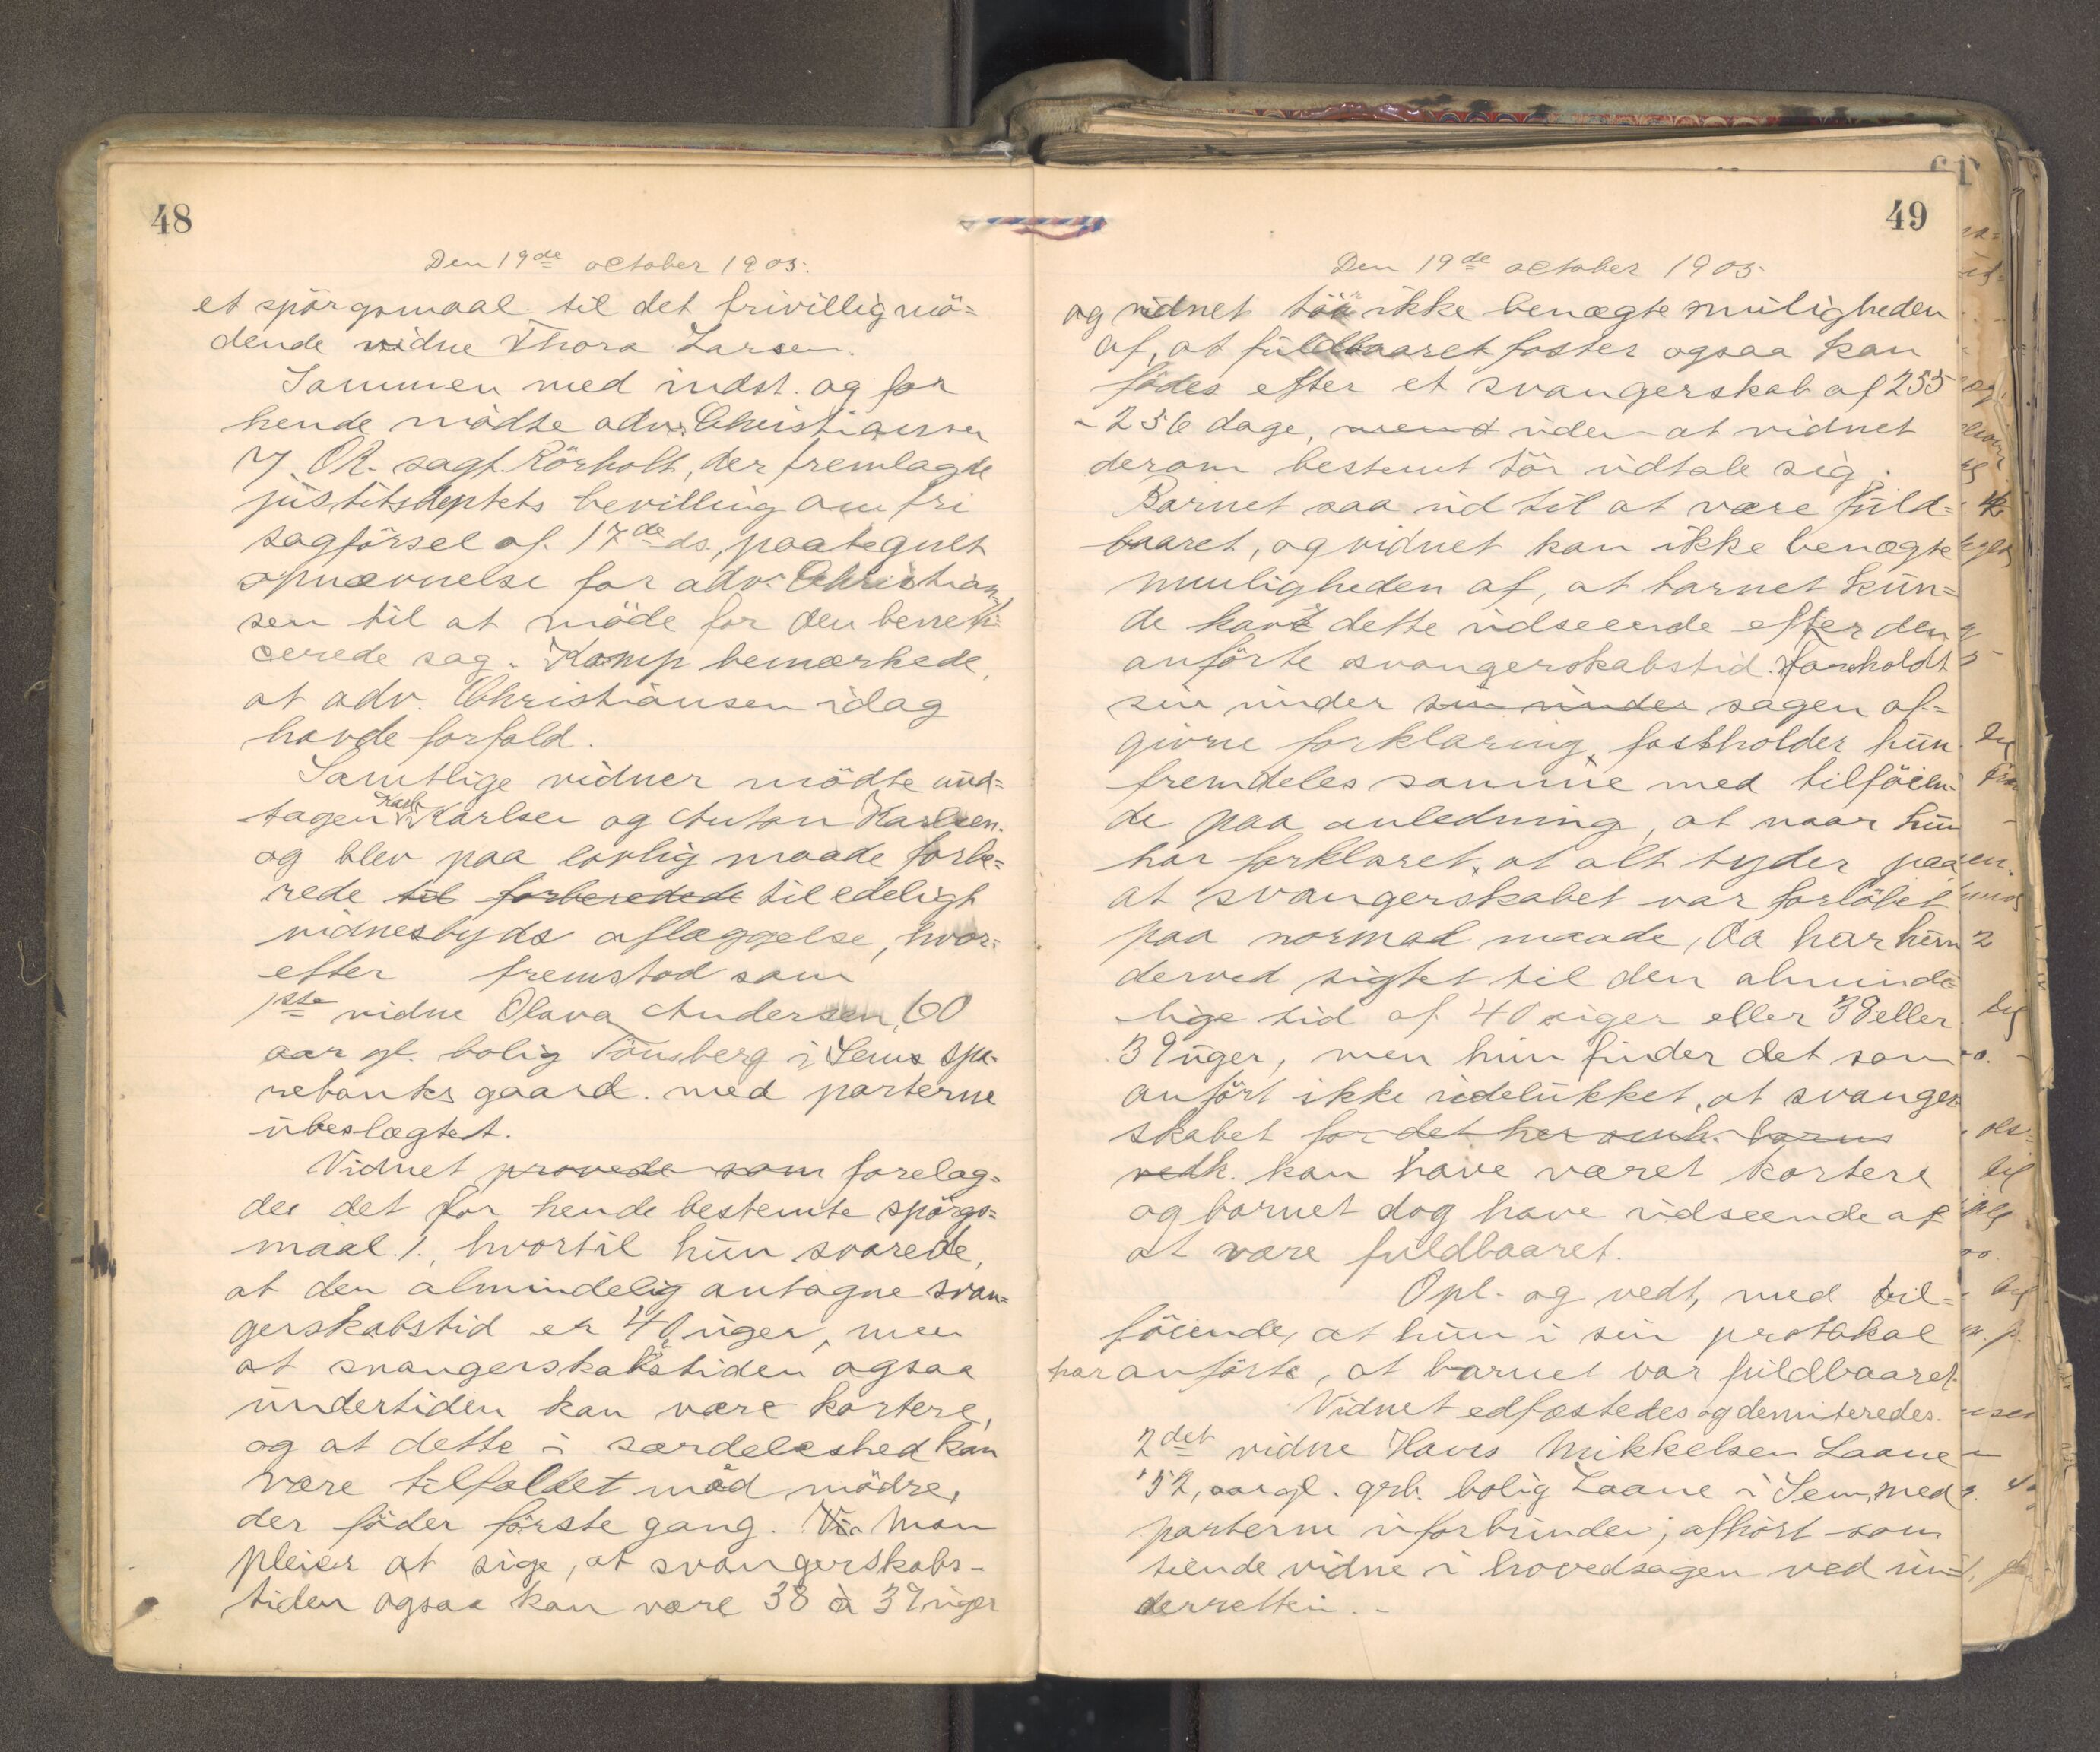 48
Den 19de october 1905.
et spörgsmaal til det frivillig mö=
dende vidne Thora Larsen.
Sammen med indst. og for
hende mödte adv. Christiansen
v/ OR. sagf. Rörholt, der fremlagde
justitsdeptets bevilling om fri
sagförsel af 17de ds., paategnet
opnævnelse for adv. Christian
sen til at möde for den benefi=
cerede sag. Komp bemærkede,
at adv. Christiansen idag
havde forfald.
Samtlige vidner mödte und=
tagen Karlsen og Anton Karlsen.
og blev paa lovlig maade forbe=
rede til forberedede til edeligt
vidnesbyds aflæggelse, hvor=
efter fremstod som
1ste vidne Olava Andersen, 60
aar gl. bolig Tönsberg i Sems spa=
rebanks gaard. med parterne
ubeslægtet.
Vidnet provede som forelag=
des det for hende bestemte spörgs=
maal 1., hvortil hun svarede,
at den almindelig antagne svan=
gerskabstid er 40 uger, men
at svangerskabstiden ogsaa
undertiden kan være kortere,
og at dette i særdeleshed kan
være tilfaldet mod mödre,
der föder förste gang. Vi Man
pleier at sige, at svangerskabs-
tiden ogsaa kan være 38 à 39 uger
49
Den 19de october 1905.
og vidnet tör ikke benægte muligheden
af, at fuldbaaret foster ogsaa kan
födes efter et svangerskab af 255
- 256 dage, mend uden at vidnet
derom bestemt tör udtale sig.
Barnet saa ud til at være fuld=
baaret, og vidnet kan ikke benægte
muuligheden af, at barnet kun=
de havt dette udseende efter den
anförte svangerskabstid. Foreholdt
sin under sin under sagen af=
givne forklaring, fastholder hun
fremdeles samme med tilföien=
de paa anledning, at naar hun
har forklaret, at alt tyder paa,
at svangerskabet var forlöbet
paa normal maade, da har hun
derved sigtet til den alminde=
lige tid af 40 uger eller 38 eller
39 uger, men hun finder det som
anfört ikke udelukket, at svanger=
skabet for det her omh. barns
vedk. kan have været kortere
og barnet dog have udseende af
at være fuldbaaret.
Opl. og vedt, med til=
föiende, at hun i sin protokol
har anförte, at barnet var fuldbaaret.
Vidnet edfæstedes og demiteredes.
2det vidne Hans Mikkelsen Laane
52, aar gl. grb. bolig Laane i Sem, med
parterne uforbunden; afhört som
tiende vidne i hovedsagen ved un=
derretten. -